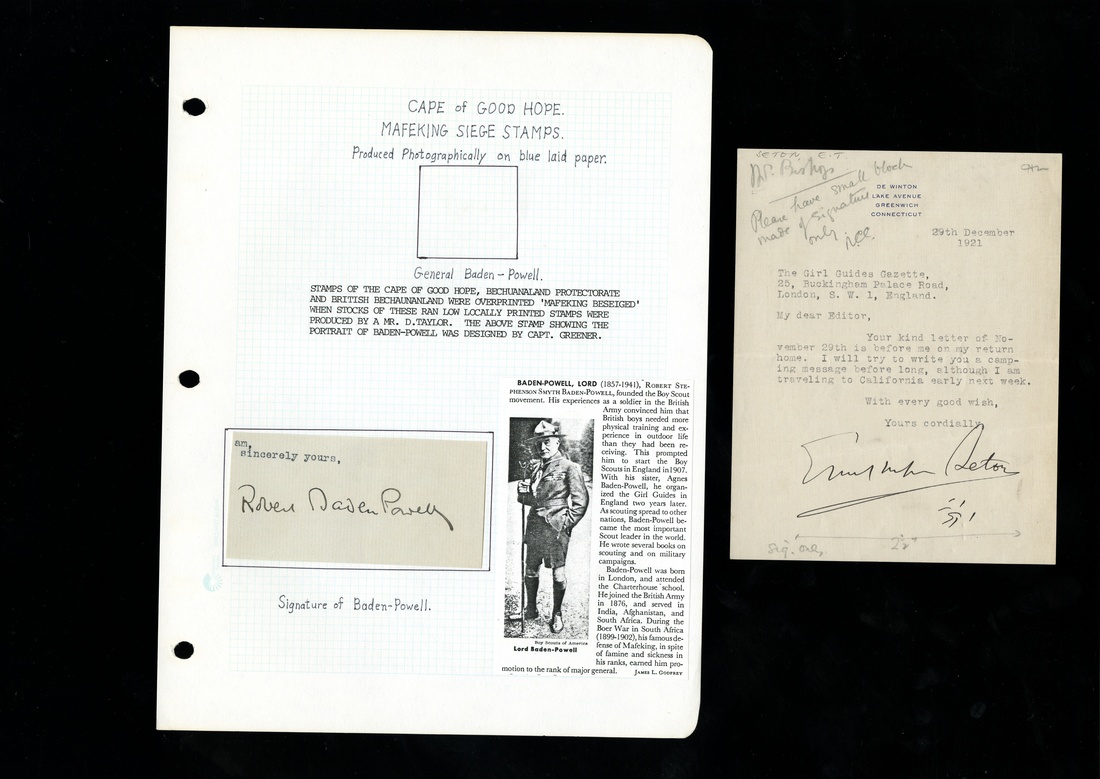 CAPE of GOOD HOPE.
MAFEKING SIEGE STAMPS.
Produced Photographically on blue laid paper.
General Baden-Powell.
STAMPS OF THE CAPE OF GOOD HOPE, BECHUANALAND PROTECTORATE
AND BRITISH BECHAUNANLAND WERE OVERPRINTED 'MAFEKING BESEIGED'
WHEN STOCKS OF THESE RAN LOW LOCALLY PRINTED STAMPS WERE
PRODUCED BY A MR. D.TAYLOR. THE ABOVE STAMP SHOWING THE
PORTRAIT OF BADEN-POWELL WAS DESIGNED BY CAPT. GREENER.
BADEN-POWELL, LORD (1857-1941), ROBERT STE-
PHENSON SMYTH BADEN-POWELL, founded the Boy Scout
movement. His experiences as a soldier in the British
Army convinced him that
British boys needed more
physical training and ex-
perience in outdoor life
than they had been re-
ceiving. This prompted
him to start the Boy
Scouts in England in 1907.
With his sister, Agnes
Baden-Powell, he organ-
ized the Girl Guides in
England two years later.
As scouting spread to other
nations, Baden-Powell be-
came the most important
Scout leader in the world.
He wrote several books on
scouting and on military
campaigns.
Baden-Powell was born
in London, and attended
the Charterhouse school.
He joined the British Army
in 1876, and served in
India, Afghanistan, and
South Africa. During the
Boer War in South Africa
(1899-1902), his famous de-
fense of Mafeking, in spite
of famine and sickness in
his ranks, earned him pro-
motion to the rank of major general. JAMES L. GODFREY
Boy Scouts of America
Lord Baden-Powell
am,
sincerely yours,
Robert Baden Powell
Signature of Baden-Powell.
SETON, E.T.
Mr. Bishop
Please have small block
made of signature
only
DE WINTON
LAKE AVENUE
GREENWICH
CONNECTICUT
29th December
1921
The Girl Guides Gazette,
25, Buckingham Palace Road,
London, S. W. 1, England.
My dear Editor,
Your kind letter of No-
vember 29th is before me on my return
home. I will try to write you a camp-
ing message before long, although I am
traveling to California early next week.
With every good wish,
Yours cordially
Ernest Thompson Seton
Sig. only